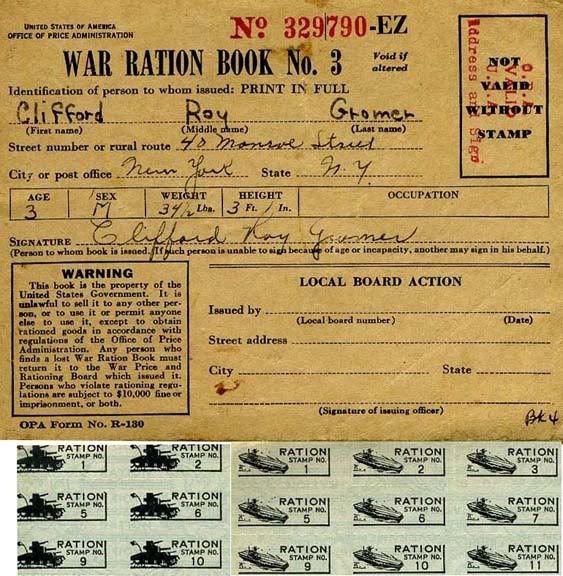 UNITED STATES OF AMERICA
OFFICE OF PRICE ADMINISTRATION
No 329790-EZ
WAR RATION BOOK No. 3
Void if
altered
Identification of person to whom issued: PRINT IN FULL
Clifford Roy Gromer
(First name) (Middle name) (Last name)
Street number or rural route 40 Monroe Street
City or post office New York State N.Y.
AGE SEX WEIGHT HEIGHT OCCUPATION
3 M 34½ Lbs. 3 Ft. 1 In.
SIGNATURE Clifford Roy Gromer
(Person to whom book is issued. If such person is unable to sign because of age or incapacity, another may sign in his behalf.)
NOT
VALID
WITHOUT
STAMP
VALID
Address and Sign
WARNING
This book is the property of the
United States Government. It is
unlawful to sell it to any other per-
son, or to use it or permit anyone
else to use it, except to obtain
rationed goods in accordance with
regulations of the Office of Price
Administration. Any person who
finds a lost War Ration Book must
return it to the War Price and
Rationing Board which issued it.
Persons who violate rationing regu-
lations are subject to $10,000 fine or
imprisonment, or both.
LOCAL BOARD ACTION
Issued by
(Local board number) (Date)
Street address
City State
(Signature of issuing officer)
OPA Form No. R-130
BK4
RATION RATION RATION RATION RATION
STAMP NO. STAMP NO. STAMP NO. STAMP NO. STAMP NO.
1 2 1 2 3
RATION RATION RATION RATION RATION
STAMP NO. STAMP NO. STAMP NO. STAMP NO. STAMP NO.
5 6 5 6 7
RATION RATION RATION RATION RATION
STAMP NO. STAMP NO. STAMP NO. STAMP NO. STAMP NO.
9 10 9 10 11